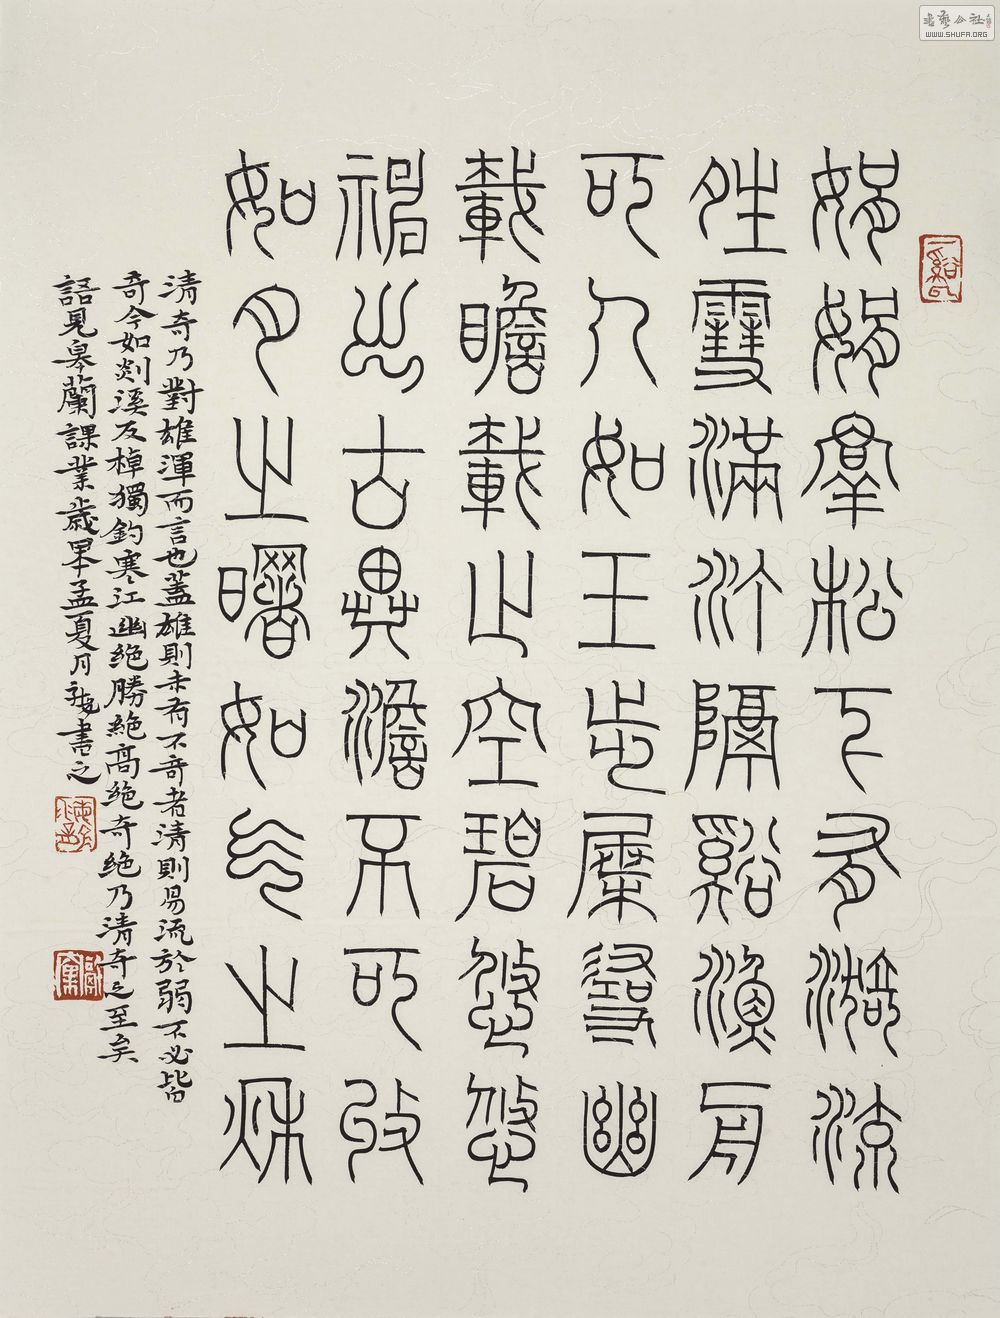 娟娟羣松下有漪流
姓雪滿汀隔谿漁舟
可人如玉步屧尋幽
載瞻載止空碧悠悠
神出古異澹不可收
如月之曙如气之秋
清奇乃對雄渾而言也蓋雄則未有不奇者清則易流於弱不必皆
奇今如剡溪反棹獨釣寒江幽絶勝絶高絶奇絶乃清奇之至矣
語見皋蘭課業歲孟夏月書之
书艺公社
WWW.SHUFA.ORG